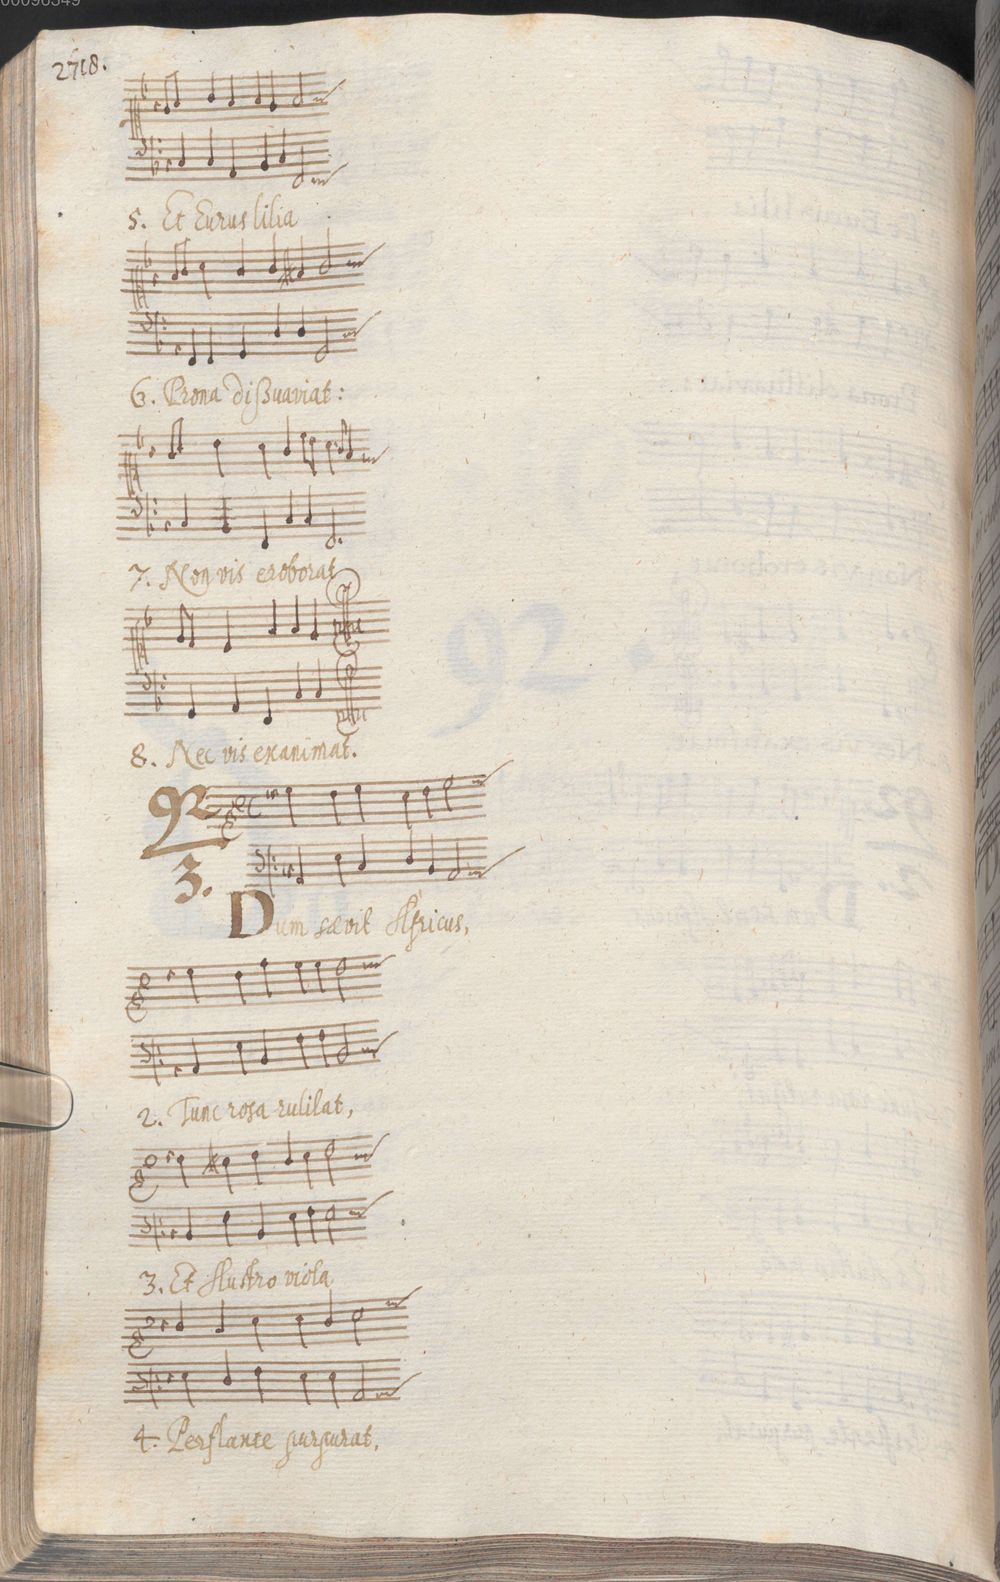 00096349
2718.
5. Et Eurus lilia
6. Prona dißuaviat:
7. Non vis eroborat
8. Nec vis exanimat.
92
3.
Dum sævit Africus,
2. Tunc rosa rutilat,
3. Et Austro viola
4. Perflante purpurat.